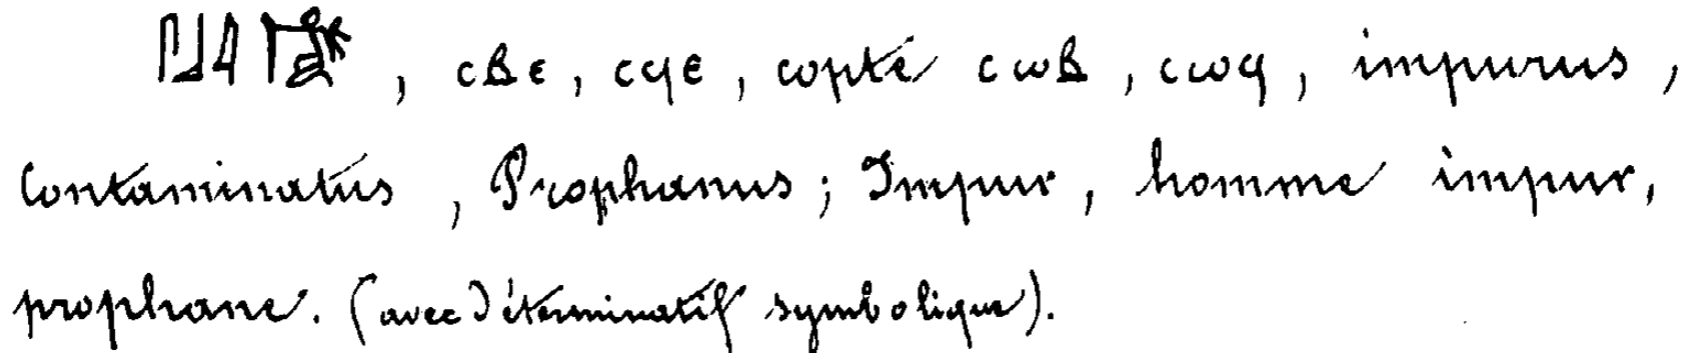 𓋴𓃀𓇋, ⲥⲃⲉ, ⲥϥⲉ, copte ⲥⲱⲃ, ⲥⲱϥ, impurus,
Contaminatus, Prophanus; Impur, homme impur,
prophane. (avec déterminatif symbolique).